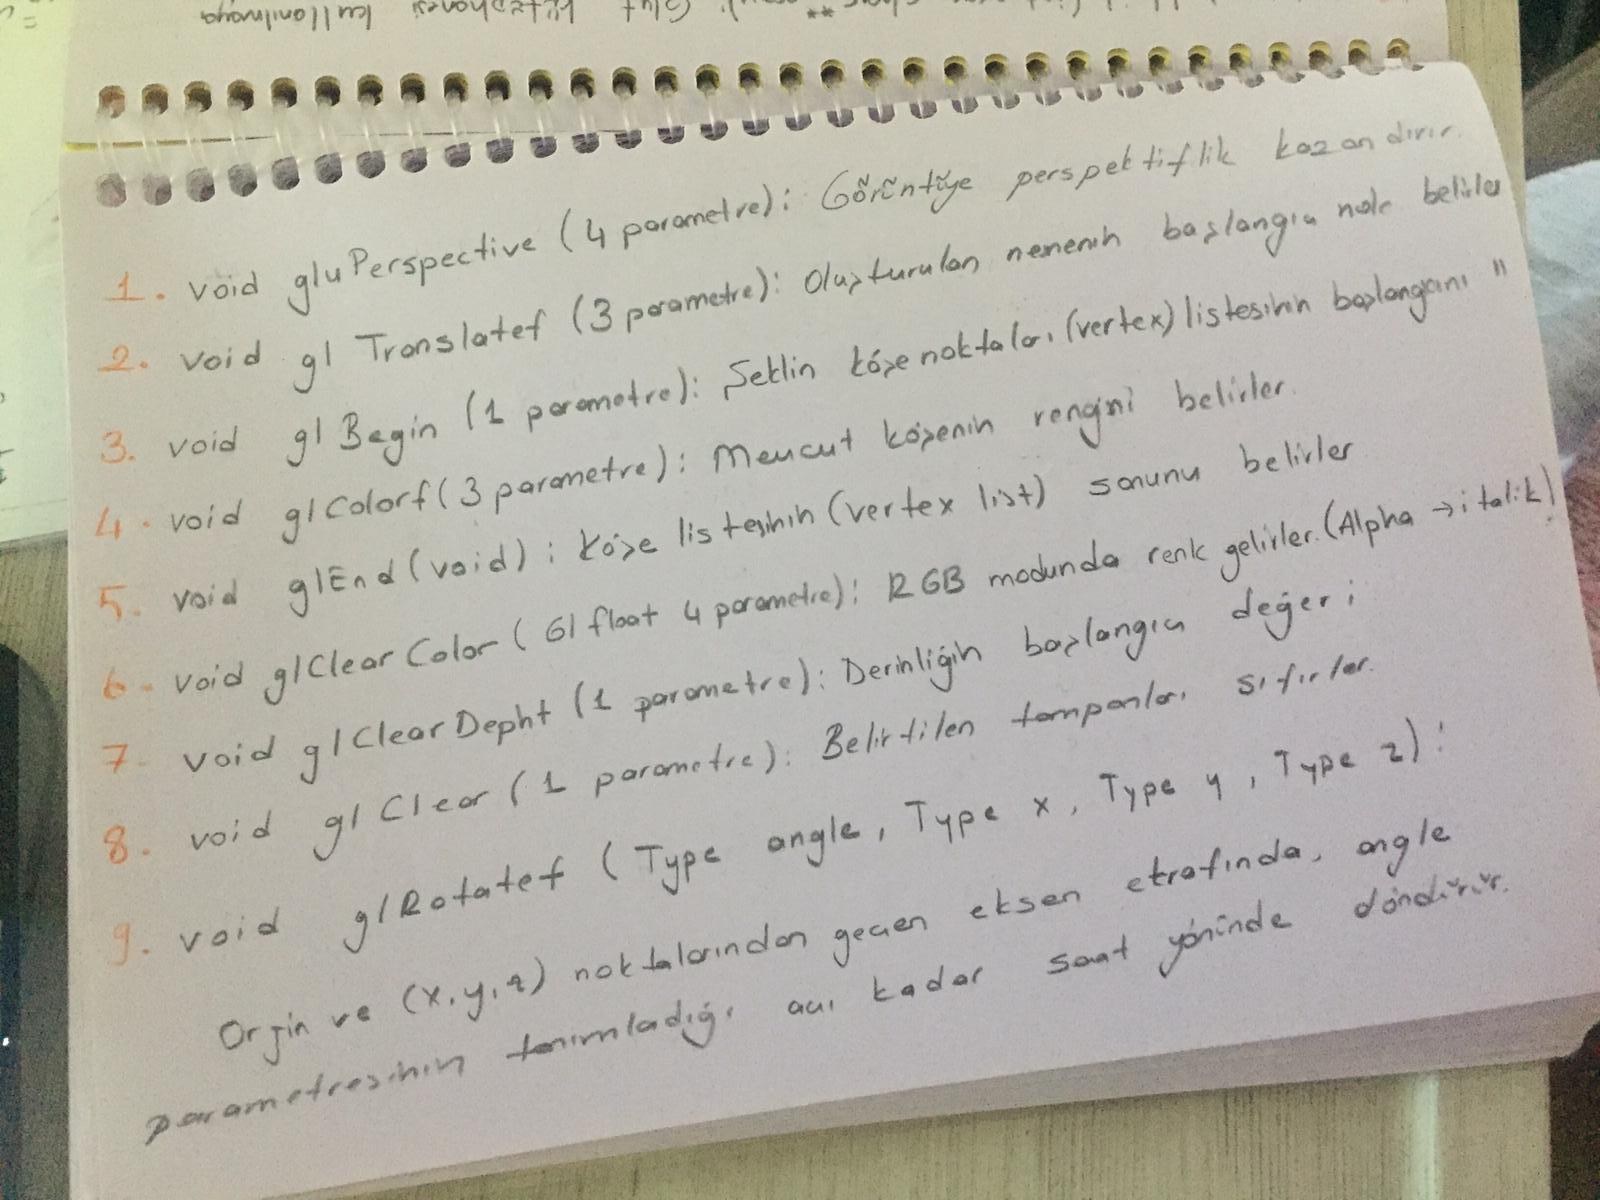 kütüphanesi kullanılmaya
1. void gluPerspective (4 parametre): Görüntüye perspektiflik kazandırır.
2. void glTranslatef (3 parametre): Oluşturulan nesnenin başlangıç nok belirler
3. void glBegin (1 parametre): Şeklin köşe noktaları (vertex) listesinin başlangıcını "
4. void glColorf (3 parametre): Mevcut köşenin rengini belirler.
5. void glEnd (void): Köşe listesinin (vertex list) sonunu belirler
6. void glClearColor (Gl float 4 parametre): RGB modunda renk gelirler. (Alpha → italik)
7. void glClearDepht (1 parametre): Derinliğin başlangıç değeri
8. void glClear (1 parametre): Belirtilen tamponları sıfırlar.
9. void glRotatef (Type angle, Type x, Type y, Type z):
Orjin ve (x,y,z) noktalarından geçen eksen etrafında, angle
parametresinin tanımladığı açı kadar saat yönünde döndürür.